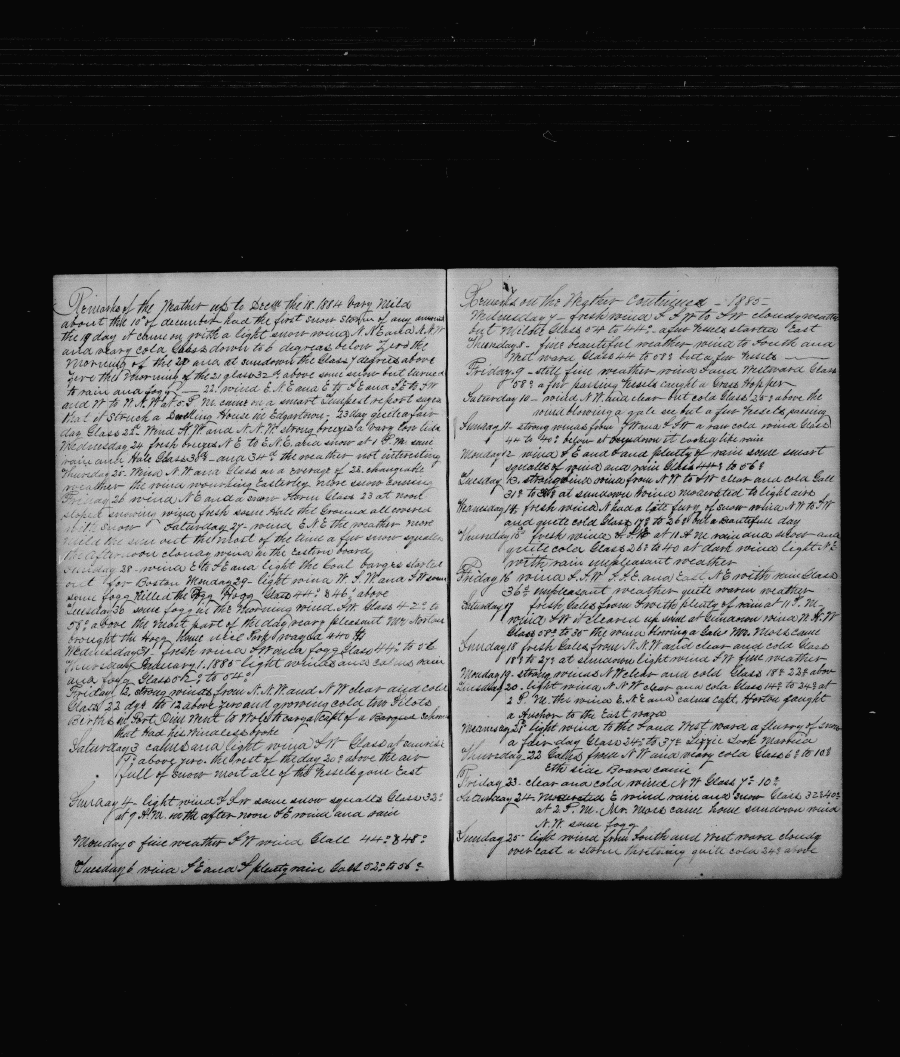 Remarks of the Weather up to Decm the 18. 1884 Vary Mild
about the 10th of december had the first snow Storm of any amount
the 19 day it came on with a light snow wind N. N E and N.N.W
and veary cold Glass down to 6 degrees below Zero the
Morning of the 20 and at sundown the Glass 7 degrees above
Zero the Morning of the 21 glass 32° above some snow but turned
to rain and fogg — 22. wind E. N E and E to S E and S E to S W
and W to W.N.W at 5 P. M. came on a smart Tempest report says
that it Struck a Dwelling House in Edgartown. 23 day quite a fair
day Glass 28° Wind N.W. and N. N. W. strong breeze a vary low tide
Wednesday 24 fresh breeze N E to E.N.E and snow at 1 P. M. some
rain and Hale Glass 38° and 34° the weather not interesting
Thursday 25. Wind N.W and Glass on a average of 22. changable
weather the wind mourking Easterly more snow Evening
Friday 26 wind N E and a snow storm Glass 23 at noon
stoped snowing wind fresh some Hale the Ground all covered
with Snow Saturday 27. wind E N E the weather more
mild the sun out the most of the time a few snow squalls
the afternoon cloudy wind in the eastern board
Sunday 28. wind E to S E and light the Coal barges started
out for Boston Monday 29. light wind W. S. W and S W some
some fogg Killed the Hogg Glass 44° & 46° above
Tuesday 30 some fogg in the Morning wind S.W. Glass 42° to
50° above the most part of the day veary pleasant Mr Norton
brought the Hogg home nice Pork waghd 440 lb
Wednesday 31. fresh wind S W and a fogg Glass 44° to 50
Thursday January 1. 1885 light winds and calms rain
and fogg Glass 52° to 54°
Friday 2. strong winds from N.N.W and N W clear and cold
Glass 22 dgs to 12 above Zero and growing cold two Pilots
Berths in Port. One went to Wols to cargo Capt of a Barque Schooner
that had his Windless broke
Saturday 3 calms and light wind S W Glass at sunrise
13° above zero. the rest of the day 20° above the air
full of snow most all of the Vessels gone East
Sunday 4. light wind S S W some snow squalls Glass 32°
at 9 A.M. in the after noon S E wind and rain
Monday 5 fine weather S W wind Glass 44° & 48°
Tuesday 6 wind S E and S plenty rain Glass 52° to 56°
Remarks on the Wether Continued - 1885 -
Wednesday 7 - fresh wind S S W to S W cloudy weather
but Mild Glass 54 to 44° after Vessels started East
Thursday 8 - fine beautiful weather wind to South and
West ward Glass 44 to 50° but a few Vessels
Friday 9 - still fine weather wind S and Westward Glass
50° a few passing Vessels caught a Grass Hopper
Saturday 10 - wind N.W. and clear but cold Glass 25° above the
wind blowing a gale see but a few Vessels passing
Sunday 11 - strong winds from W and S W a raw cold wind Glass
44 to 40° below at sundown it looks like rain
Monday 12 wind S E and S and plenty of rain some smart
squalls of wind and rain Glass 44° to 56°
Tuesday 13. strong wind winds from N W to S W clear and cold Gall
31° to at sundown wind moderated to light airs
Wensday 14. fresh wind N had a late fury of snow wind N W to S W
and quite cold Glass 17° to 26° but a Beautifull day
Thursday 15 fresh wind S S W at 11 A. M. rain and snow and
quite cold Glass 26° to 40 at dark wind light N.E
with rain unpleasant weather
Friday 16 wind S. S. W S. S. E. and East N E with rain Glass
36° unpleasant weather quite warm weather
Saturday 17 fresh Gales from S with plenty of rain at 11 P. M.
wind S W it cleared up wind at Sundown wind W. N. W
Glass 50° to 35° the wind blowing a Gale Mr. Mors came
Sunday 18 fresh Gales from N. N. W and clear and cold Glass
18° to 27° at sundown light wind S W fine weather
Monday 19. strong winds N W clear and cold Glass 18° 22° abov
Tuesday 20. light wind N. N W. clear and cold Glass 14° to 24° at
2 P. M. the wind E. N E and calms Capt. Horton faught
a Anchor to the East ward
Wednesday 21° light wind to the S and West ward a flurry of snow
a fair day Glass 24° to 37° Lizzie Look Married
Thursday 22 Gales from N. W and veary cold Glass 6° to 10°
Eth side Board came
Friday 23. clear and cold wind N W Glass 7° 10°
Saturday 24. Moderated E wind rain and snow Glass 32° 40°
at 2 P. M. Mr. Mors came home sundown wind
N. W some fogg
Sunday 25. light wind from South and West ward cloudy
over cast a storm thretning quite cold 24° above